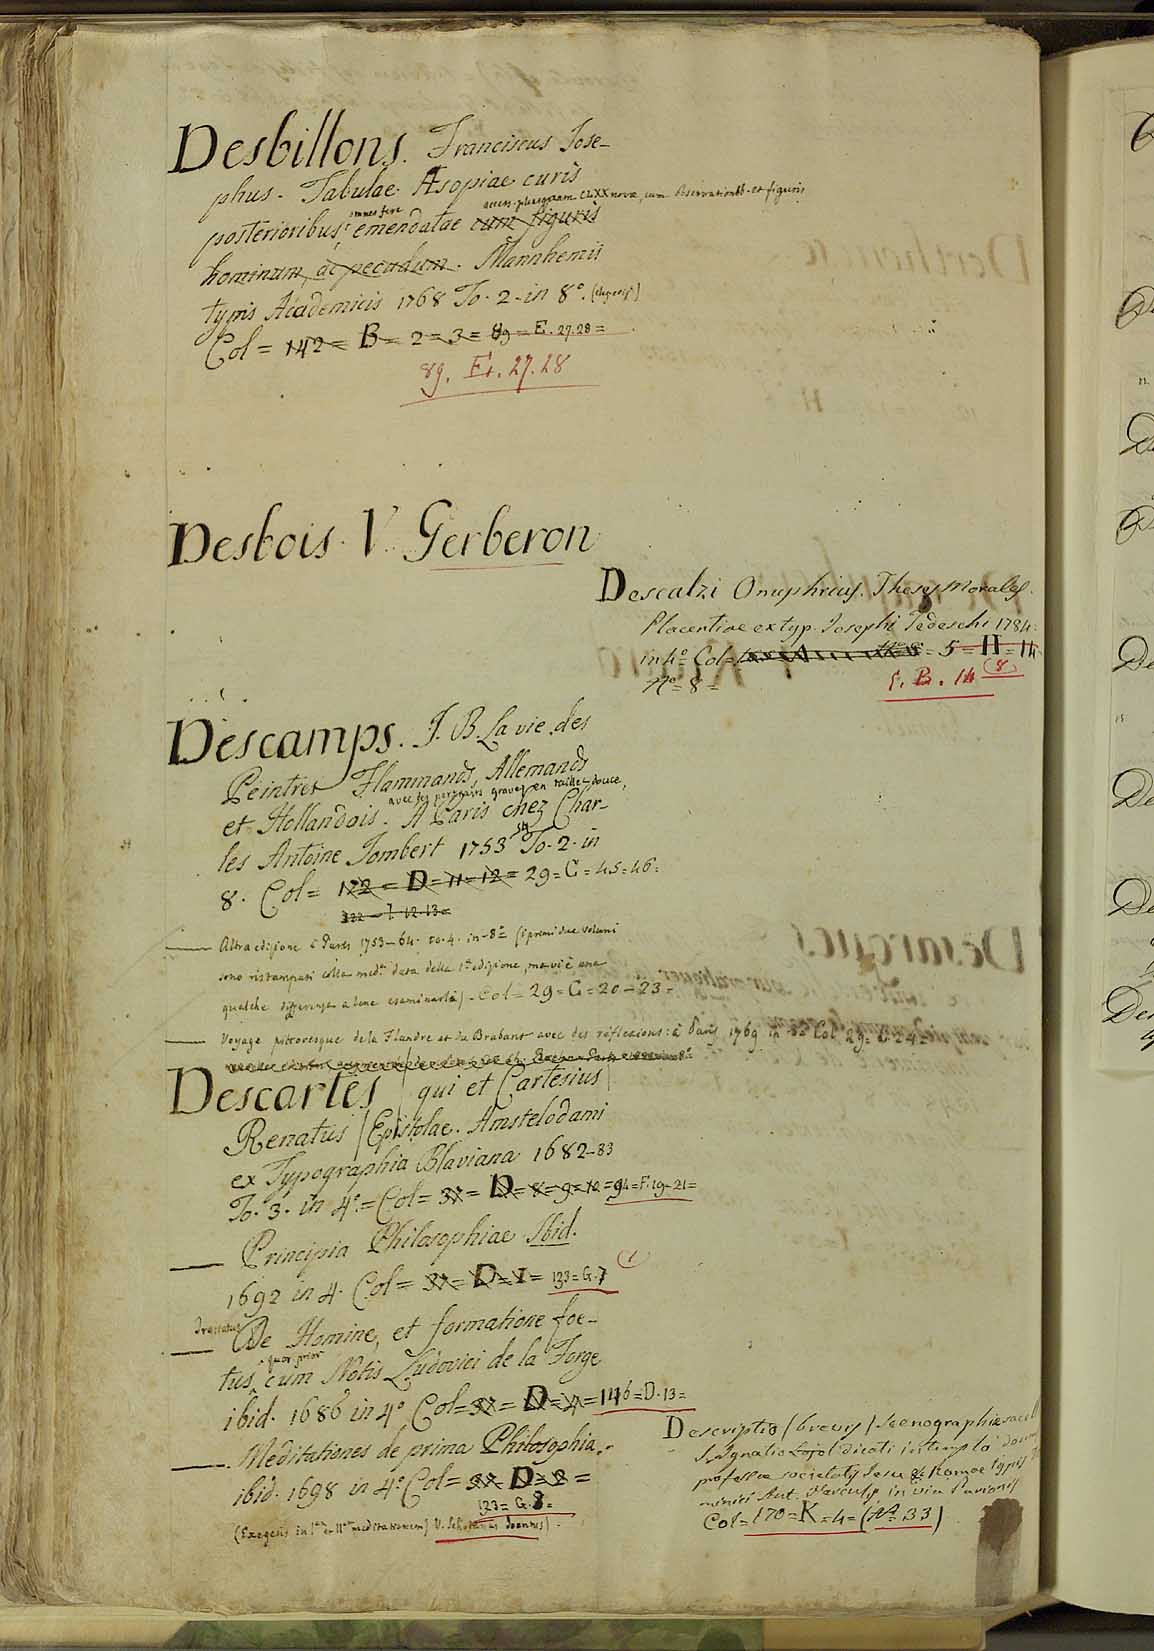 Desbillons. Franciscus Jose-
phus. Fabulae Æsopiae curis
access. plusquam CLXX novæ, cum observationib. et figuris
omnes fere
posterioribus, emendatae cum figuris
hominum, ac pecudum. Mannhemii
typis Academicis 1768 To. 2. in 8°.
Col = 142 = B = 2 = 3 = 89 = E. 27.28 =
89. E. 27.28
Desbois. V. Gerberon
Descalzi Onuphrius. Theses Morales.
Placentiae ex typ. Josephi Tedeschi 1784.
in 4° Col = 5 = H = 14
N° 8 =
B. 14 (8)
Descamps. J. B. La vie des
Peintres Flammands, Allemands
avec des portraits gravez en taille-douce,
et Hollandois. A Paris chez Char-
les Antoine Jombert 1753 To. 2. in
54
8. Col = 122 = D = 11 = 12 = 29 = G = 45 = 46.
122 = I. 12. 13 =
Altra edizione à Paris 1753-64. to. 4. in-8° (i primi due volumi
sono ristampati colla med. data della 1ª edizione, ma vi è una
qualche differenza a bene esaminarla) . Col = 29 = G = 20 - 23 =
Voyage pittoresque de la Flandre et du Brabant avec des réflexions: à Paris 1769 in 8° Col 29 = G. 24 =
Descartes (qui et Cartesius)
Renatus / Epistolae. Amstelodami
ex Typographia Blaviana 1682-83
To. 3. in 4° = Col = 37 = D = 8 = 9 = 10 = 94 = F. 19-21 =
Principia Philosophiae Ibid.
1692 in 4. Col = 37 = D = 1 = 133 = G. 7 (1)
Tractatus
De Homine, et formatione foe-
quor. prior
tus, cum Notis Ludovici de la Forge
ibid. 1686 in 4° Col = 37 = D = 4 = 146 = D. 13 =
Meditationes de prima Philosophia.
ibid. 1698 in 4° Col = 37 = D = 2 =
133 = G. 8 =
(Exegesis in Iam et IIam meditationem) V. Joannes) .
Descriptio (brevis) Scenographiae
S. Ignatio Lojol. dicati in templo domus
professae societatis Jesu &c. Romae typis
Ant. in via Parionis
Col = 170 = K = 4 = (N° 33)